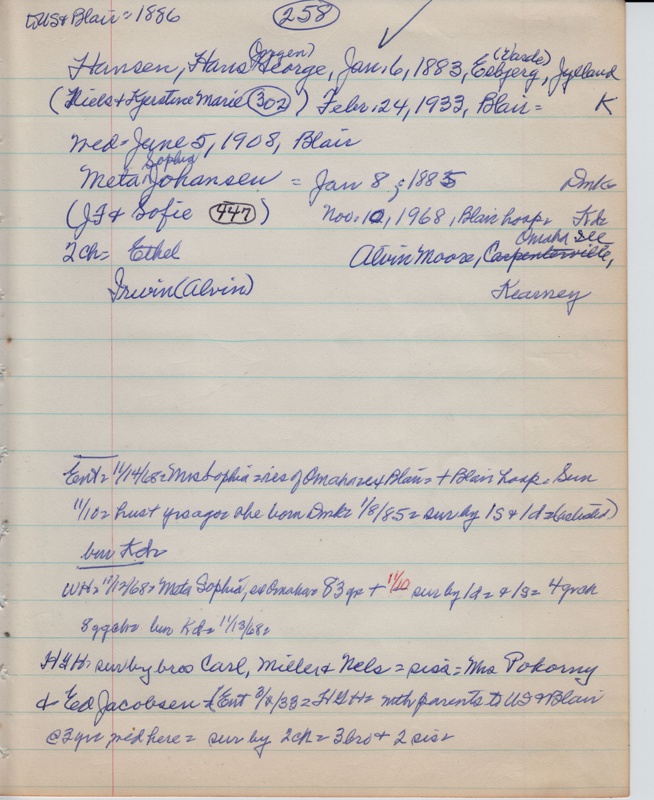 US & Blair = 1886
258
Hansen, Hans (Jorgen) George, Jan. 6, 1883, Esbjerg, (Varde) Jylland
(Niels & Kjerstine Marie 302) Febr. 24, 1933, Blair = K
wed = June 5, 1908, Blair
Meta Sophia Johansen = Jan 8, 1885 Dmk =
(J.F. & Sofie 447) Nov. 10, 1968, Blair hosp = Kd =
2 ch = Ethel Alvin Moore, Carpenterville, Omaha
Irwin (Alvin) Kearney
Ent = 11/14/68 = Mrs Sophia = res of Omaha = ex Blair = + Blair hosp = Sun
11/10 = hus + yrs ago = she born Dmk = 1/8/85 = sur by 1 S & 1 d = (as listed)
bur Kd =
WH = 11/12/68 = Meta Sophia, ex Omaha = 83 yrs + 11/10 sur by 1 d = & 1 S = 4 grch
8 ggch = bur Kd = 11/13/68 =
HGH = sur by bros Carl, Miller & Nels = sis's = Mrs Pokorny
& Ed Jacobsen (Ent 3/2/33 = HGH = with parents to US & Blair
@ 3 yrs = wed here = sur by 2 ch = 3 bro & 2 sis =